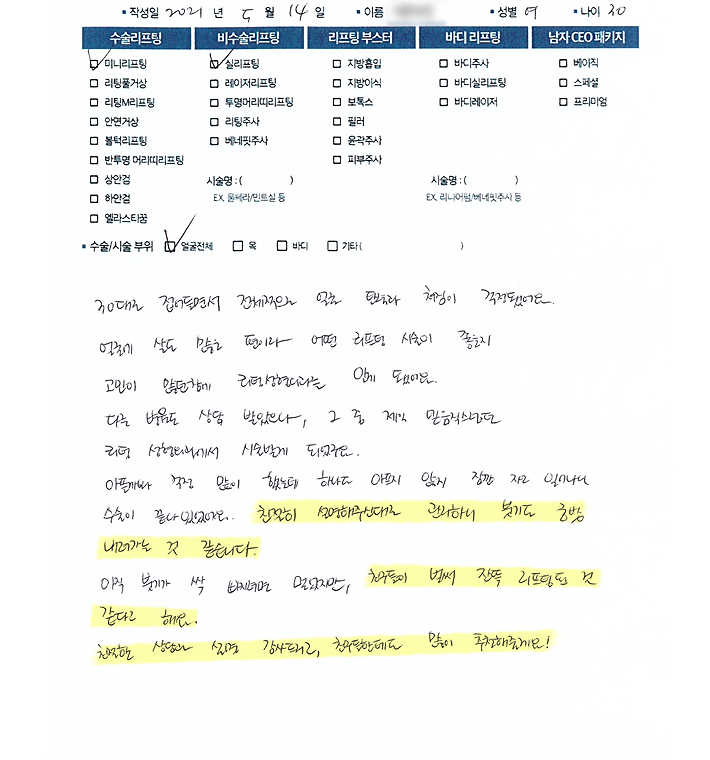 ▪ 작성일 2021 년 5 월 14 일 ▪ 이름 ▪ 성별 여 ▪ 나이 30
수술리프팅 비수술리프팅 리프팅 부스터 바디 리프팅 남자 CEO 패키지
미니리프팅 실리프팅 지방흡입 바디주사 베이직
리팅풀거상 레이저리프팅 지방이식 바디실리프팅 스페셜
리팅M리프팅 투명머리띠리프팅 보톡스 바디레이저 프리미엄
안면거상 리팅주사 필러
볼턱리프팅 베네핏주사 윤곽주사
반투명 머리띠리프팅 피부주사
상안검 시술명 : ( ) 시술명 : ( )
하안검 EX. 울쎄라/민트실 등 EX. 리니어펌/베네핏주사 등
엘라스티꿈
▪ 수술/시술 부위 얼굴전체 목 바디 기타 ( )
30대로 접어들면서 전체적으로 얼굴 탄력과 처짐이 걱정됐어요.
얼굴에 살도 많은 편이라 어떤 리프팅 시술이 좋을지
고민이 많던차에 리팅성형외과를 알게 됐어요.
다른 병원도 상담 받았으나, 그 중 제일 믿음직스러운
리팅 성형외과에서 시술받게 되었구요.
아플까봐 걱정 많이 했는데 하나도 아프지 않게 잠깐 자고 일어나니
수술이 끝나있었어요. 친절히 설명해주신대로 관리하니 붓기도 금방
내려가는 것 같습니다.
아직 붓기가 싹 빠지려면 멀었지만, 친구들이 벌써 잔뜩 리프팅된 것
같다고 해요.
친절한 상담과 설명 감사드리고, 친구들한테도 많이 추천해줄게요!